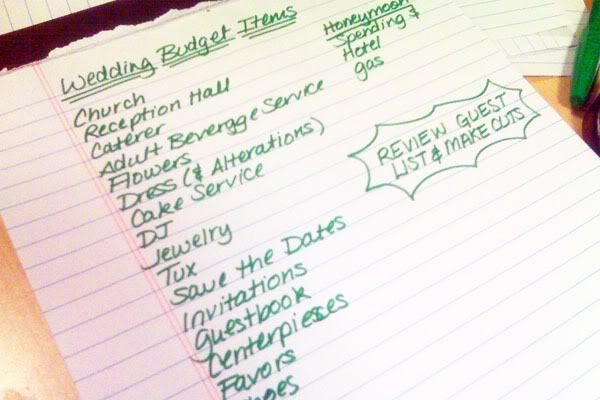 Wedding Budget Items
Church
Reception Hall
Caterer
Adult Beverage Service
Flowers
Dress (& Alterations)
Cake Service
DJ
Jewelry
Tux
Save the Dates
Invitations
Guestbook
Centerpieces
Favors
Honeymoon
Spending $
Hotel
gas
REVIEW GUEST
LIST & MAKE CUTS